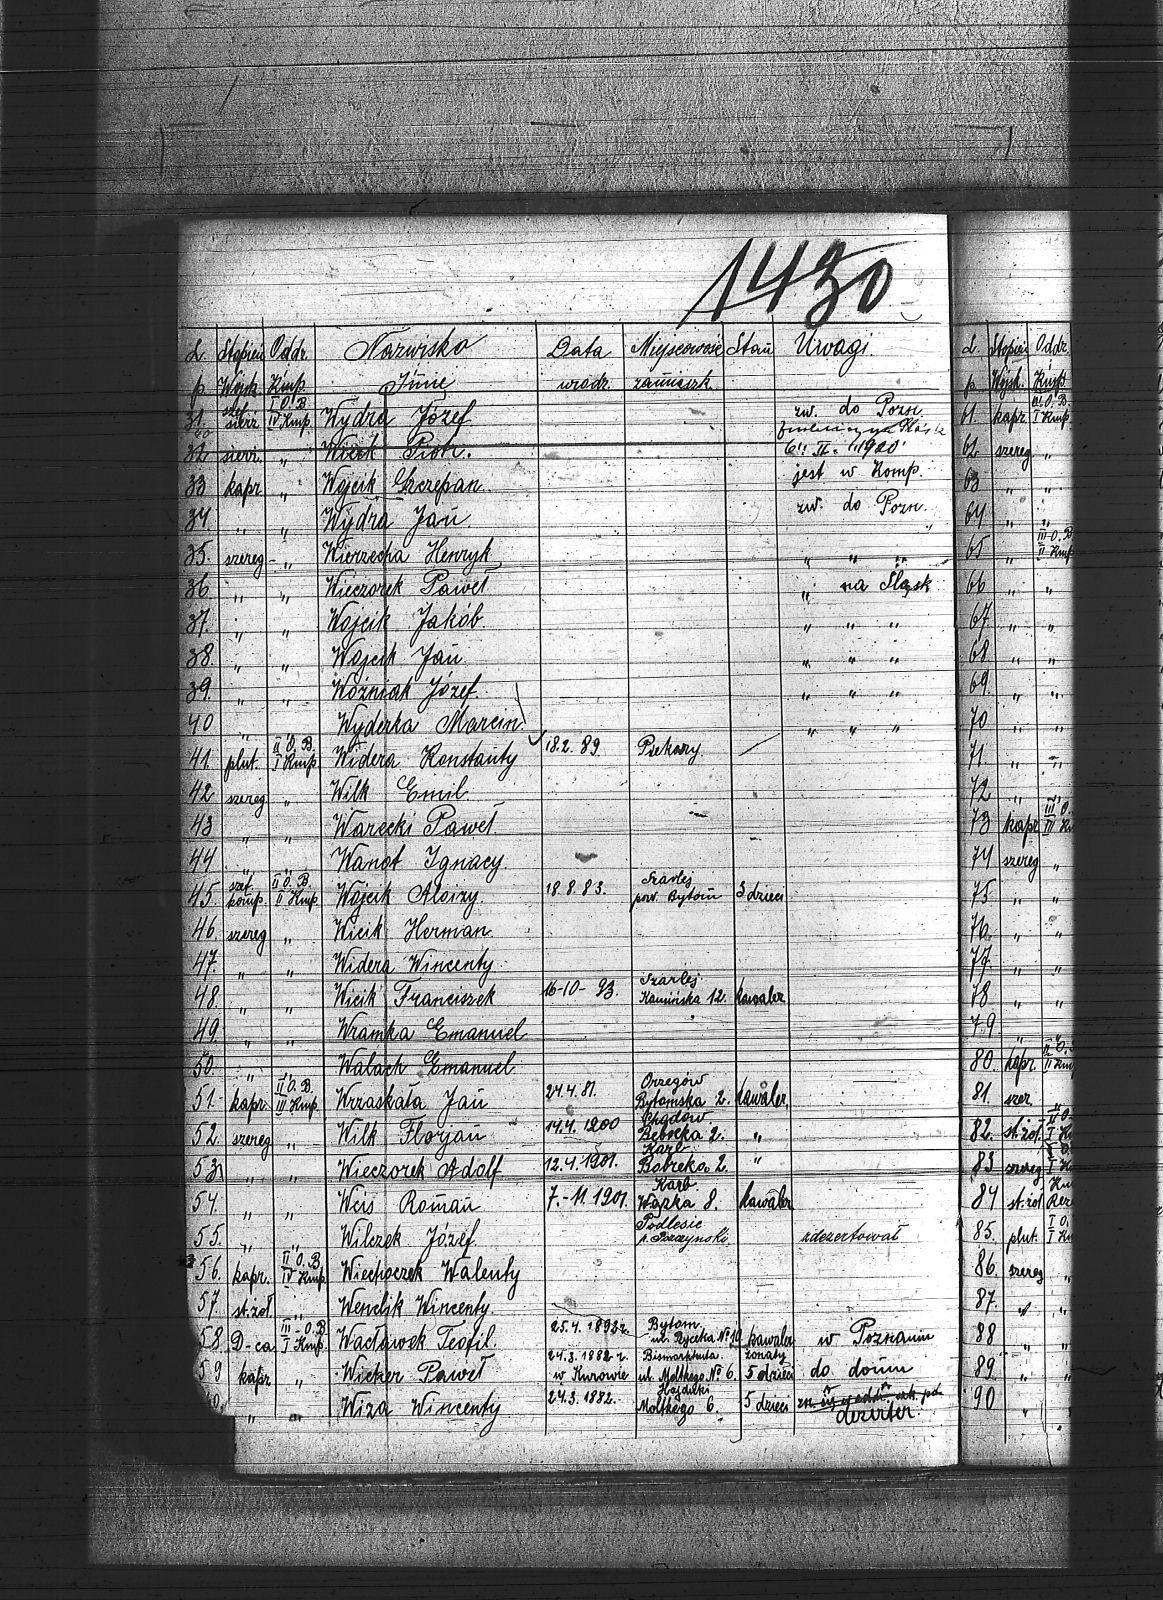 1430
L. Stopień Oddz. Nazwisko Data Miejscowość Stan Uwagi.
p. Wojsk. Kmp. Imię urodz. zamieszk.
31. szef sierż II O.B. IV Kmp. Wydra Józef zw. do Pozn.
32 sierż. " Wicik Piotr. 6. II. 1920
33 kapr " Wojcik Szczepan. jest w Komp.
34 " " Wydra Jan zw. do Pozn.
35. szereg " Wierzecha Henryk " " "
36. " " Wieczorek Paweł " na Śląsk
37. " " Wojcik Jakób " " "
38. " " Wojcik Jan " " "
39. " " Woźniak Józef " " "
40 " Wyderka Marcin " " "
41. plut. II O.B. I Kmp. Widera Konstanty 18.2.89. Piekary.
42 szereg " Wilk Emil.
43 " " Warecki Paweł
44 " " Wanot Ignacy.
45. szef komp. II O.B. II Kmp. Wojcik Aloizy 18.8.83. Szarlej pow. Bytom 3 dzieci
46. szereg " Wicik Herman
47. " " Widera Wincenty
48. " " Wicik Franciszek 16-10-93. Szarlej Kamińska 12. kawaler
49. " " Wramka Emanuel
50. " " Walach Emanuel
51. kapr. II O.B. III Kmp. Wrzaskała Jan 24.4.81. Orzegów Bytomska 2. kawaler
52. szereg " Wilk Florjan 14.4.1900 2. "
53 " " Wieczorek Adolf 12.4.1901. Karb 2. "
54. " " Weis Roman 7.-11.1901. Karb Wązka 8. kawaler
55. " " Wilczek Józef. Podlesie zdezertował
56. kapr. II O.B. IV Kmp. Wiechoczek Walenty
57. st. żoł. " Wendlik Wincenty.
58. D-ca III O.B. I Kmp. Wacławek Teofil. 25.4.1893 r. Bytom ul. Rycerka № 10 kawaler w Poznaniu
59 kapr " Wicher Paweł 24.3.1882 r. w Kurowie Bismarkhuta. ul. Moltkego № 6. żonaty 5 dzieci do domu
" Wiza Wincenty 24.3.1882. Hajduki Moltkego 6. 5 dzieci dezerter.
L. Stopień Oddz.
p. Wojsk. Kmp.
61. kapr II O.B. I Kmp.
62 szereg "
63 " "
64 " "
65 " III O.B. II Kmp
66 " "
67 " "
68 " "
69. " "
70 " "
71. " "
72 " "
73 kapr III O. III K
74 szereg "
75 " "
76 " "
77. " "
78 " "
79 "
80. kapr. II O. II Kmp
81. szer
82. st. żoł.
83 szereg
84 st. żoł
85. plut. I O. I K
86. szereg "
87. " "
88 " "
89 " "
90 " "